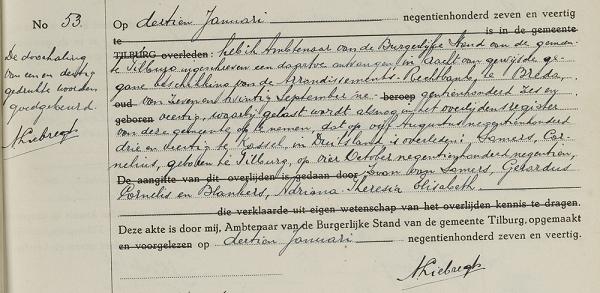 No 53.
De doorhaling
van een en dertig
gedrukte woorden
goedgekeurd.
NLiebregts
Op dertien Januari negentienhonderd zeven en veertig
te is in de gemeente
TILBURG overleden: heb ik Ambtenaar van de Burgerlijke Stand van de gemeen-
te Tilburg ingeschreven een dagtve. ontvangen in kracht van gewijsde ge-
gane beschikking van de Arrondissements-Rechtbank te Breda,
oud van zeven en twintig September ne- beroep gentienhonderd zes en
geboren veertig, waarbij gelast wordt alsnog in het overlijdensregister
van deze gemeente op te nemen, dat op vijf Augustus negentienhonderd
drie en veertig te Kassel, in Duitsland is overleden: Samers, Cor-
nelius, geboren te Tilburg, op vier October negentienhonderd negentien,
De aangifte van dit overlijden is gedaan door zoon van Samers, Gerardus
Cornelis en Blankers, Adriana Theresia Elisabeth.
die verklaarde uit eigen wetenschap van het overlijden kennis te dragen.
Deze akte is door mij, Ambtenaar van de Burgerlijke Stand van de gemeente Tilburg, opgemaakt
en voorgelezen op dertien Januari negentienhonderd zeven en veertig.
NLiebregts